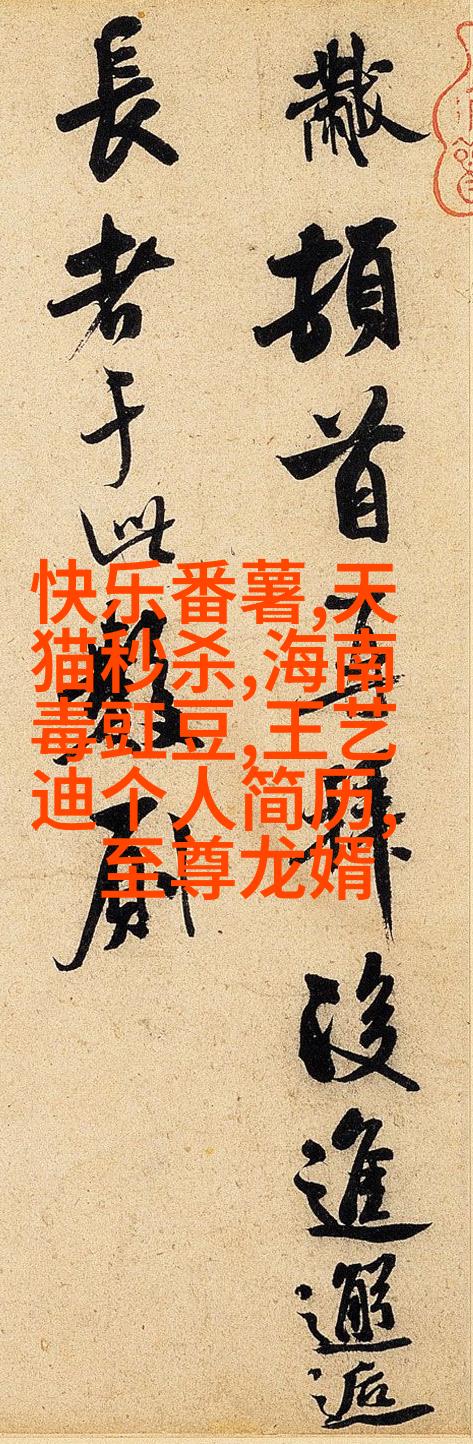 黻頓首再拜後進邂逅
長者于此數
快乐番薯,天
猫秒杀,海南
毒豇豆,王艺
迪个人简历,
至尊龙婿